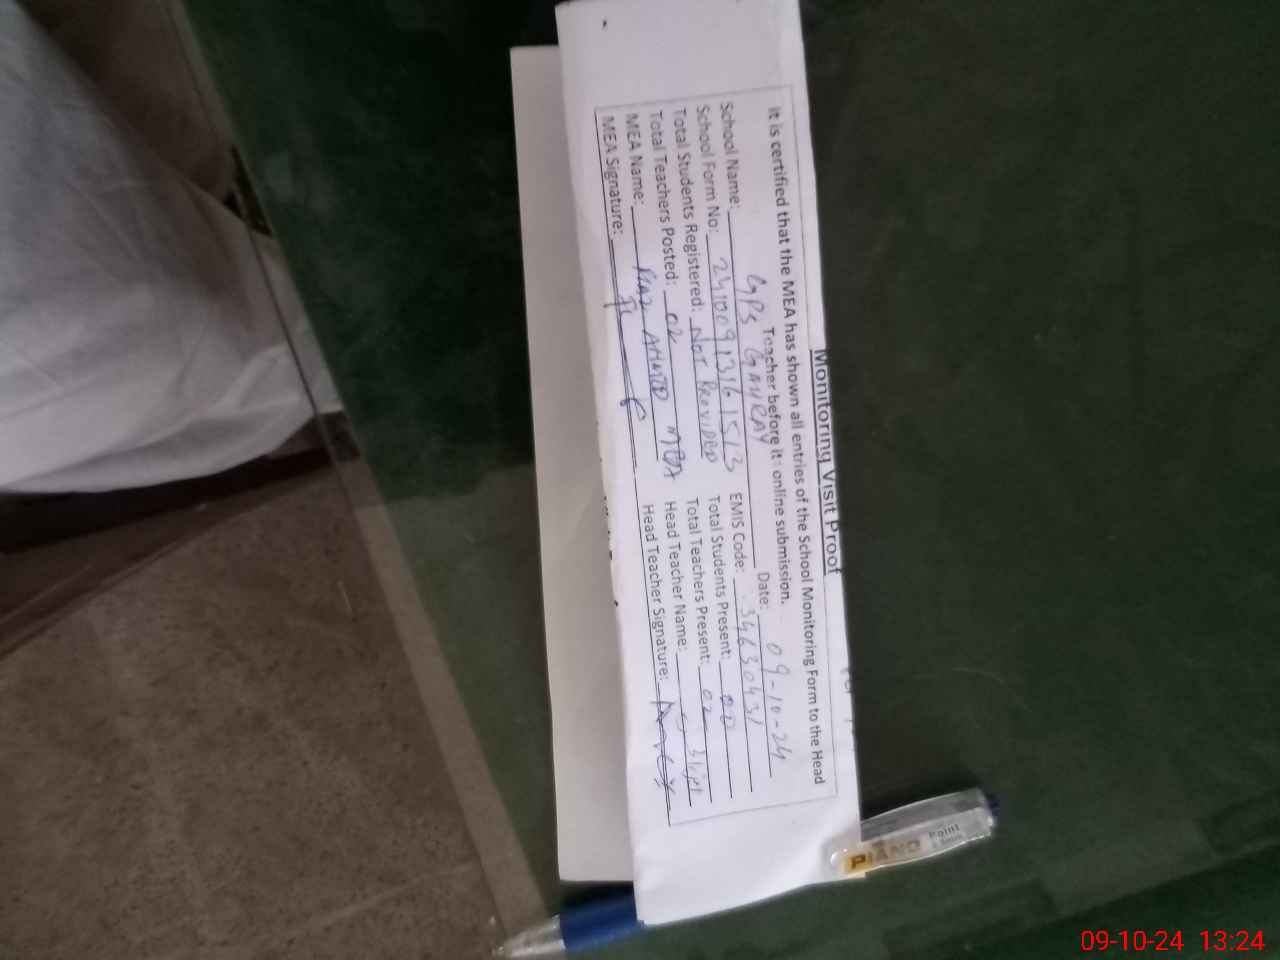 Monitoring Visit Proof
It is certified that the MEA has shown all entries of the School Monitoring Form to the Head
Teacher before it's online submission.
School Name: GPS GAHRAY Date: 09-10-24
School Form No: 24100913161513 EMIS Code: 34630431
Total Students Registered: NOT PROVIDED Total Students Present: 00
Total Teachers Posted: 02 Total Teachers Present: 02
MEA Name: AHMED MEA Head Teacher Name:
MEA Signature: Head Teacher Signature:
PIANO
Point
09-10-24 13:24